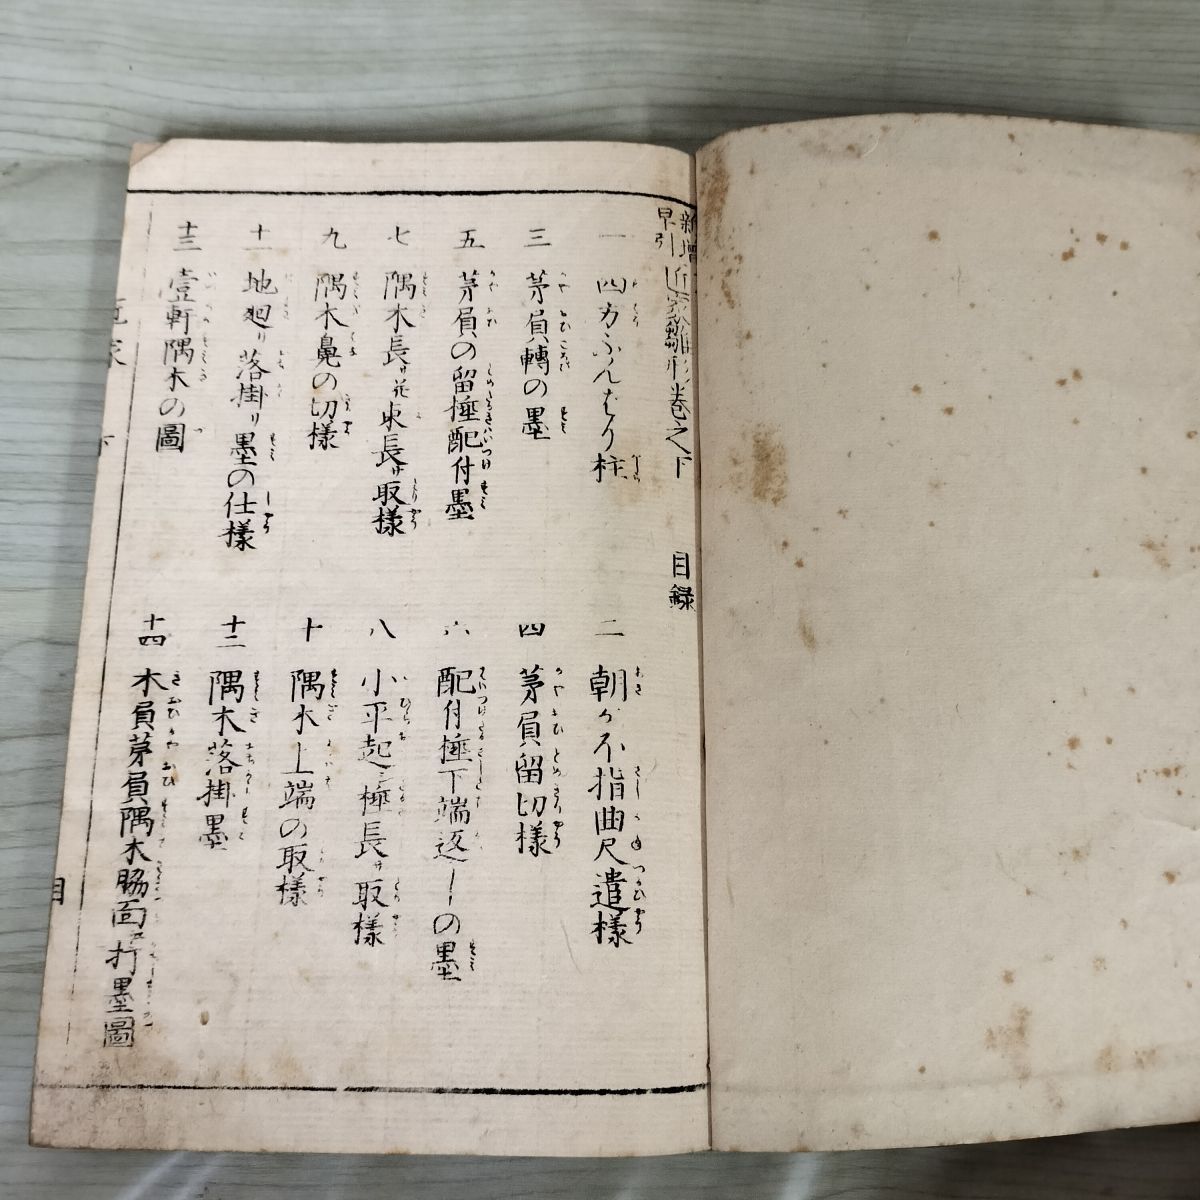 新増早引匠家雛形巻之下 目録
一 四方ふんばり柱
二 朝がほ指曲尺遣様
三 茅負轉の墨
四 茅負留切様
五 茅負の留棰配付墨
六 配付棰下端返しの墨
七 隅木長サ花束長サ取様
八 小平起シ棰長サ取様
九 隅木鼻の切様
十 隅木上端の取様
十一 地廻リ落掛リ墨の仕様
十二 隅木落掛墨
十三 壹軒隅木の圖
十四 木負茅負隅木脇面エ打墨圖